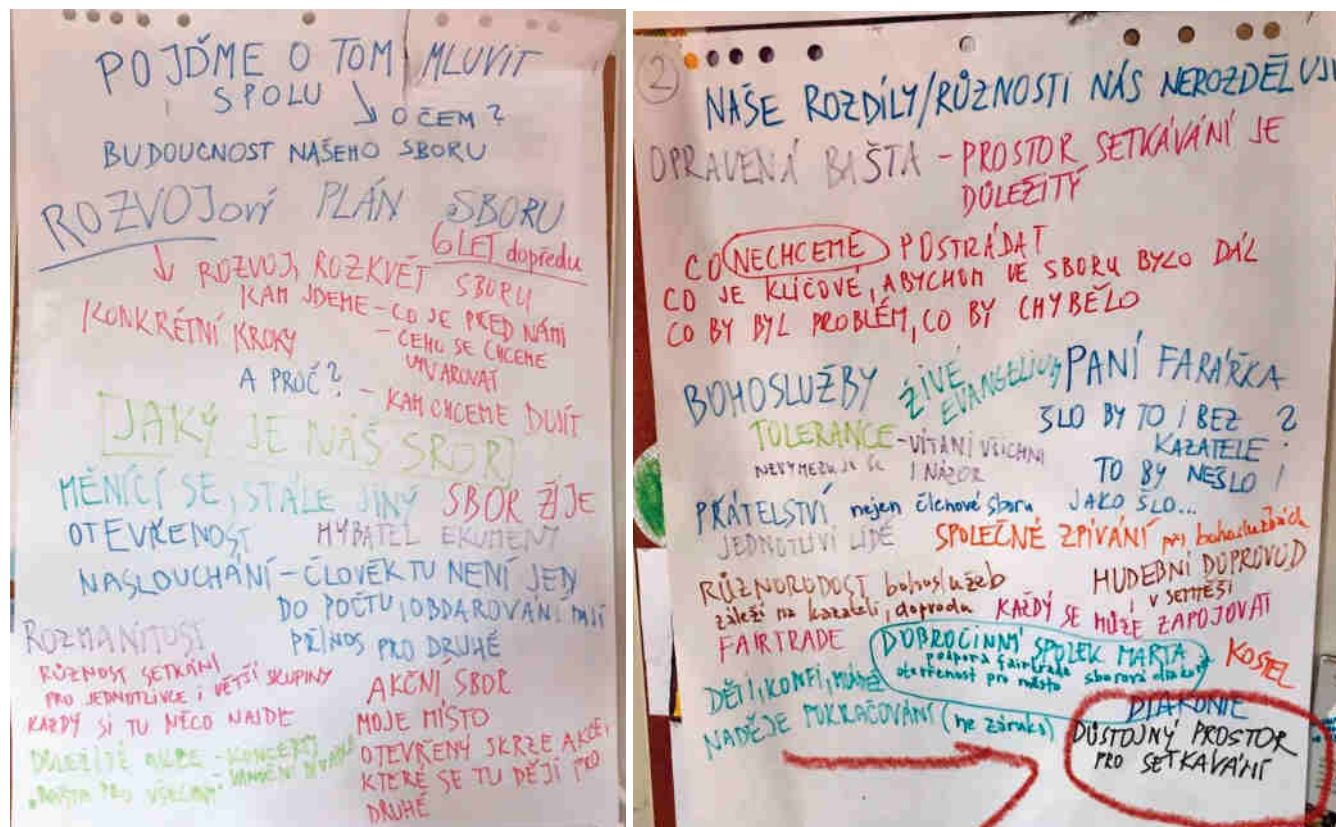 POJĎME O TOM MLUVIT
SPOLU
O ČEM?
BUDOUCNOST NAŠEHO SBORU
ROZVOJový PLÁN SBORU
6 LET dopředu
ROZVOJ, ROZKVĚT SBORU
KAM JDEME - CO JE PŘED NÁMI
KONKRÉTNÍ KROKY
- ČEHO SE CHCEME
VYVAROVAT
A PROČ?
- KAM CHCEME DOJÍT
JAKÝ JE NÁŠ SBOR
MĚNÍCÍ SE, STÁLE JINÝ SBOR ŽIJE
OTEVŘENOST HYBATEL EKUMENY
NASLOUCHÁNÍ - ČLOVĚK TU NENÍ JEN
DO POČTU, OBDAROVANÍ
PŘÍNOS PRO DRUHÉ
ROZMANITOST
RŮZNOST SETKÁNÍ
PRO JEDNOTLIVCE i VĚTŠÍ SKUPINY
KAŽDÝ SI TU NĚCO NAJDE
DŮLEŽITÉ AKCE - KONCERTY
"BAŠTA PRO VŠECHNY"
AKČNÍ SBOR
MOJE MÍSTO
OTEVŘENÝ SKRZE AKCE,
KTERÉ SE TU DĚJÍ PRO
DRUHÉ
2
NAŠE ROZDÍLY/RŮZNOSTI NÁS NEROZDĚLUJÍ
OPRAVENÁ BAŠTA - PROSTOR SETKÁVÁNÍ JE
DŮLEŽITÝ
CO NECHCEME POSTRÁDAT
CO JE KLÍČOVÉ, ABYCHOM VE SBORU BYLO DÁL
CO BY BYL PROBLÉM, CO BY CHYBĚLO
BOHOSLUŽBY ŽIVÉ
EVANGELIUM
PANÍ FARÁŘKA
ŠLO BY TO I BEZ
KAZATELE?
TO BY NEŠLO!
JAKO ŠLO...
TOLERANCE - VÍTANÍ VŠICHNI
NEVYMEZUJE SE I NÁZOR
PŘÁTELSTVÍ nejen členové sboru
JEDNOTLIVÍ LIDÉ
SPOLEČNÉ ZPÍVÁNÍ při bohoslužbách
RŮZNORODOST bohoslužeb
záleží na kazateli, doprovodu
HUDEBNÍ DOPROVOD
V SEMTĚŠI
KAŽDÝ SE MŮŽE ZAPOJOVAT
FAIRTRADE
DOBROČINNÝ SPOLEK MARTA
podpora fairtrade
otevřenost pro město sborová
KOSTEL
DĚTI, KONFI, MLÁDEŽ
DIAKONIE
NADĚJE POKRAČOVÁNÍ (ne záruka)
DŮSTOJNÝ PROSTOR
PRO SETKÁVÁNÍ